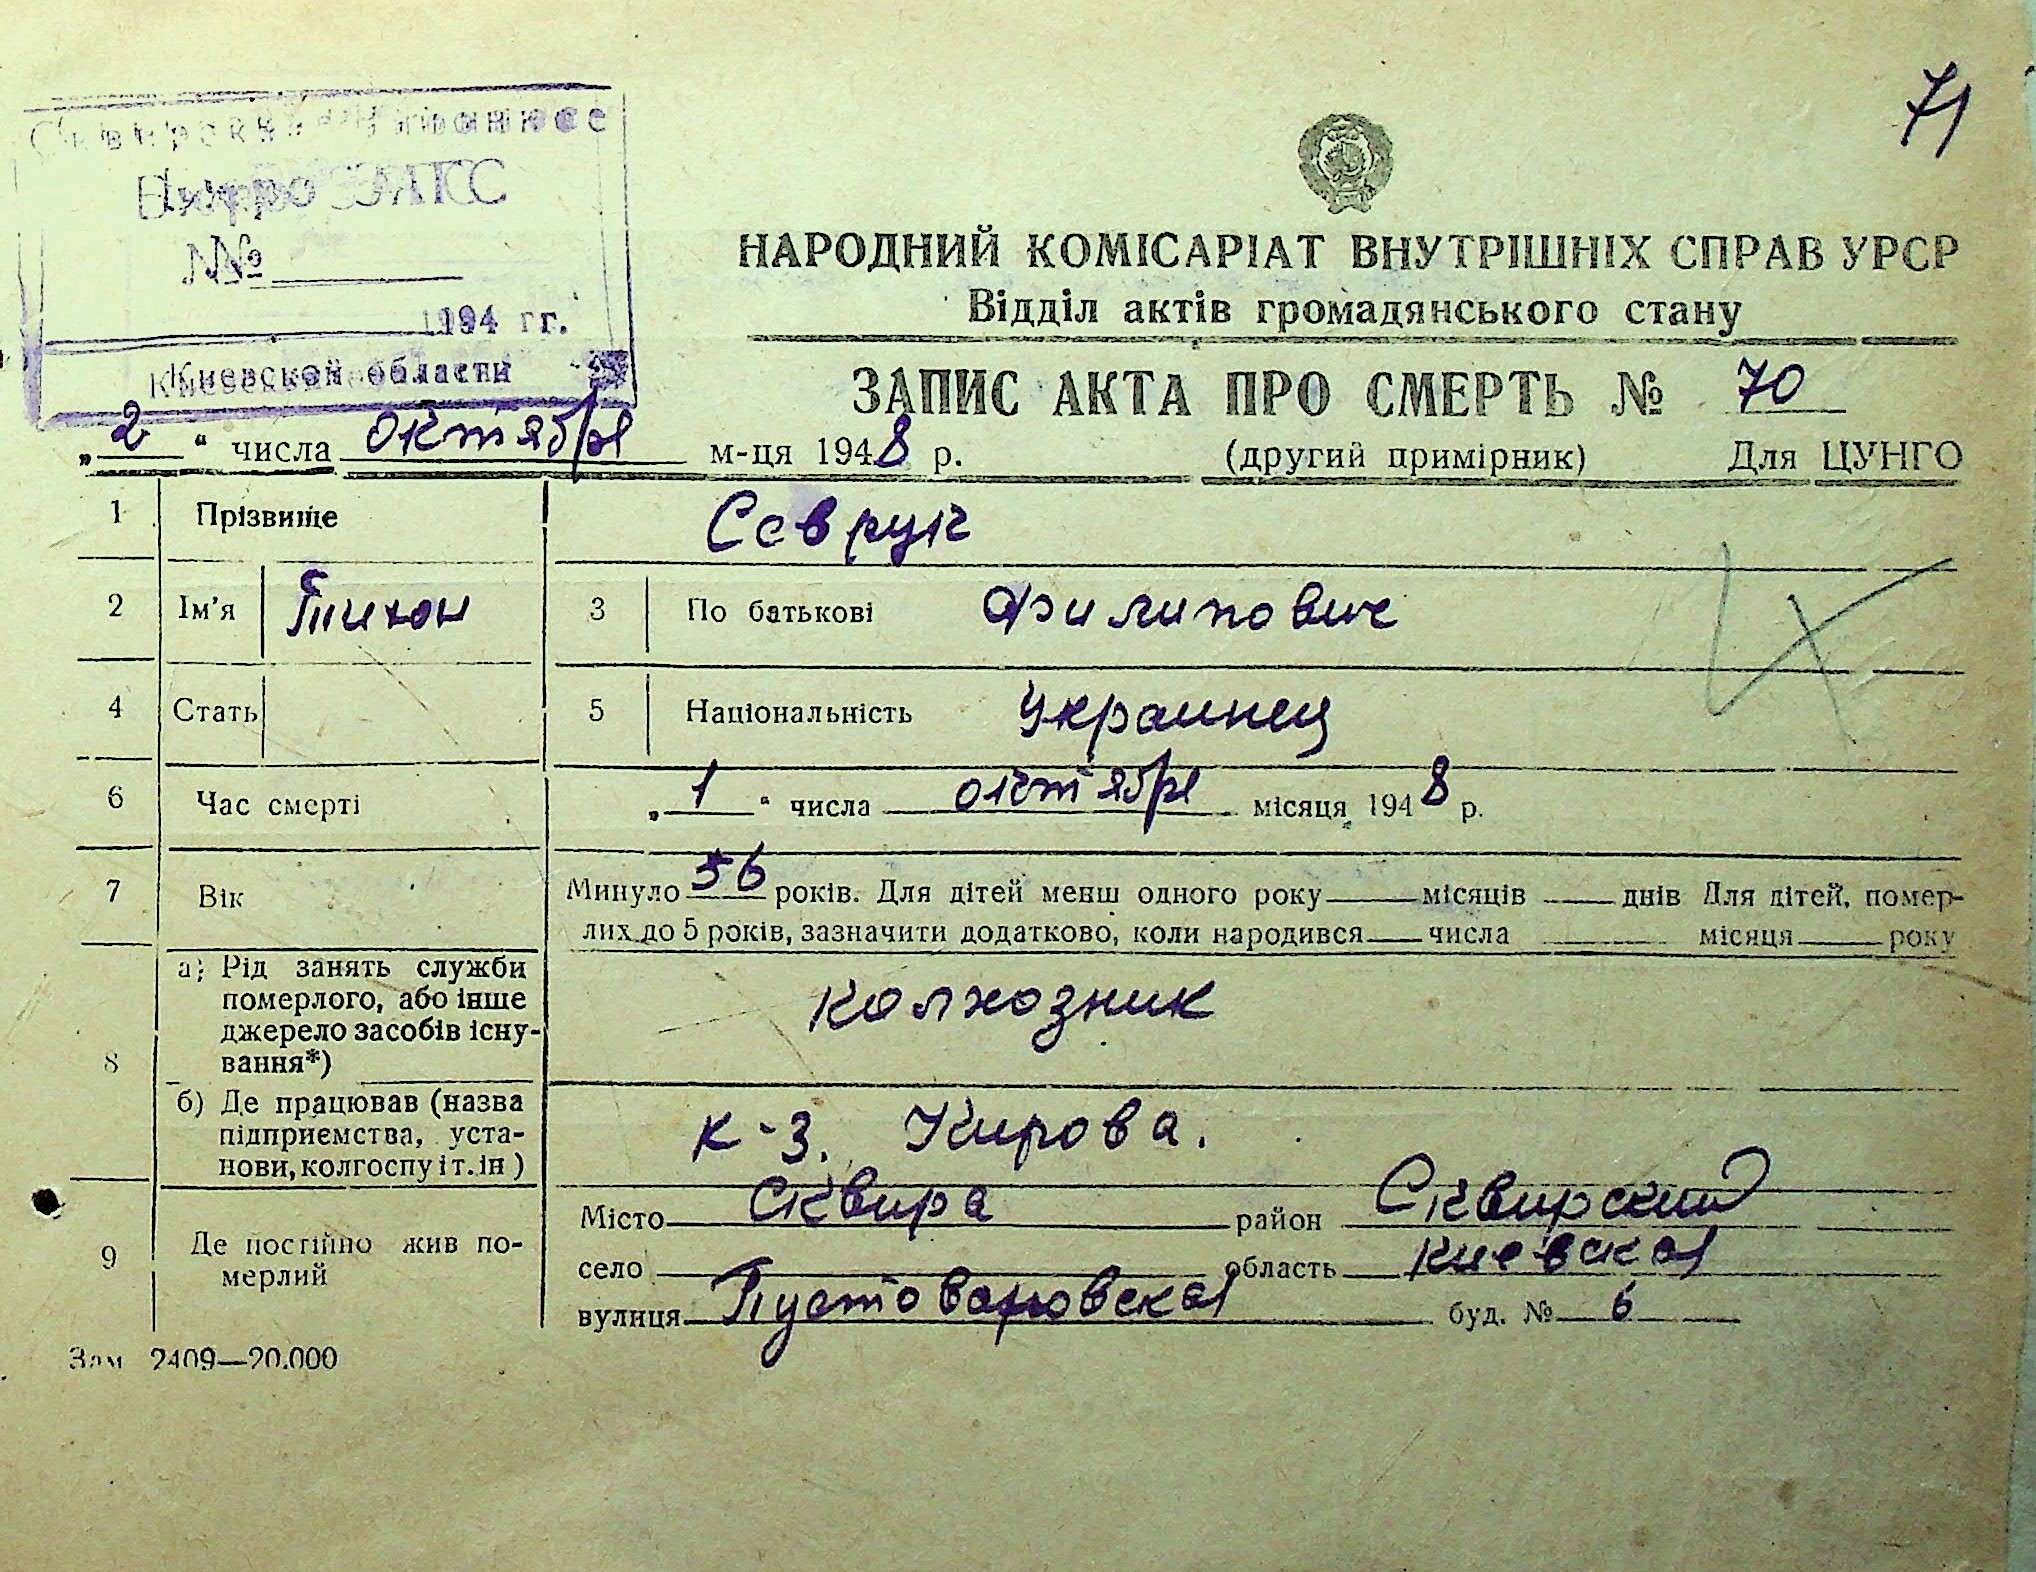 71
Сквирское районное
Бюро ЗАГС
№
194 г.
Киевской области
НАРОДНИЙ КОМІСАРІАТ ВНУТРІШНІХ СПРАВ УРСР
Відділ актів громадянського стану
ЗАПИС АКТА ПРО СМЕРТЬ № 70
„2“ числа октября м-ця 1948 р. (другий примірник) Для ЦУНГО
1 Прізвище Севрук
2 Ім’я Тихон 3 По батькові Филипович
4 Стать 5 Національність Украинец
6 Час смерті „1“ числа октября місяця 1948 р.
7 Вік Минуло 56 років. Для дітей менш одного року місяців днів Для дітей, помер-
лих до 5 років, зазначити додатково, коли народився числа місяця року
8 а) Рід занять служби
померлого, або інше
джерело засобів існу-
вання*)
колхозник
б) Де працював (назва
підприємства, уста-
нови, колгоспу і т. ін)
к-з. Кирова.
9 Де постійно жив по-
мерлий
Місто Сквира район Сквирский
село область Киевская
вулиця Пустоваровская буд. № 6
Зам 2409—20.000